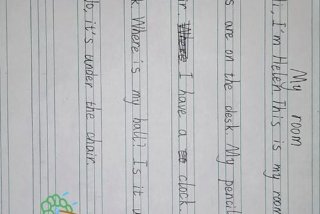 My room
i, I'm Helen This is my room
s are on the desk. My pencil
ir. I have a clock.
k. Where is my ball? Is it u
o, it's under the chair.